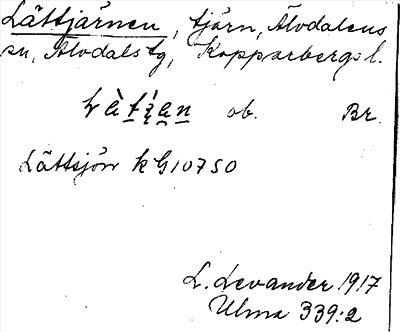 Lättjärnen, tjärn, Älvdalens
sn, Älvdals tg, Kopparbergs l.
ob. Br.
Lättsjön k G10750
L. Levander 1917
Ulma 339:2